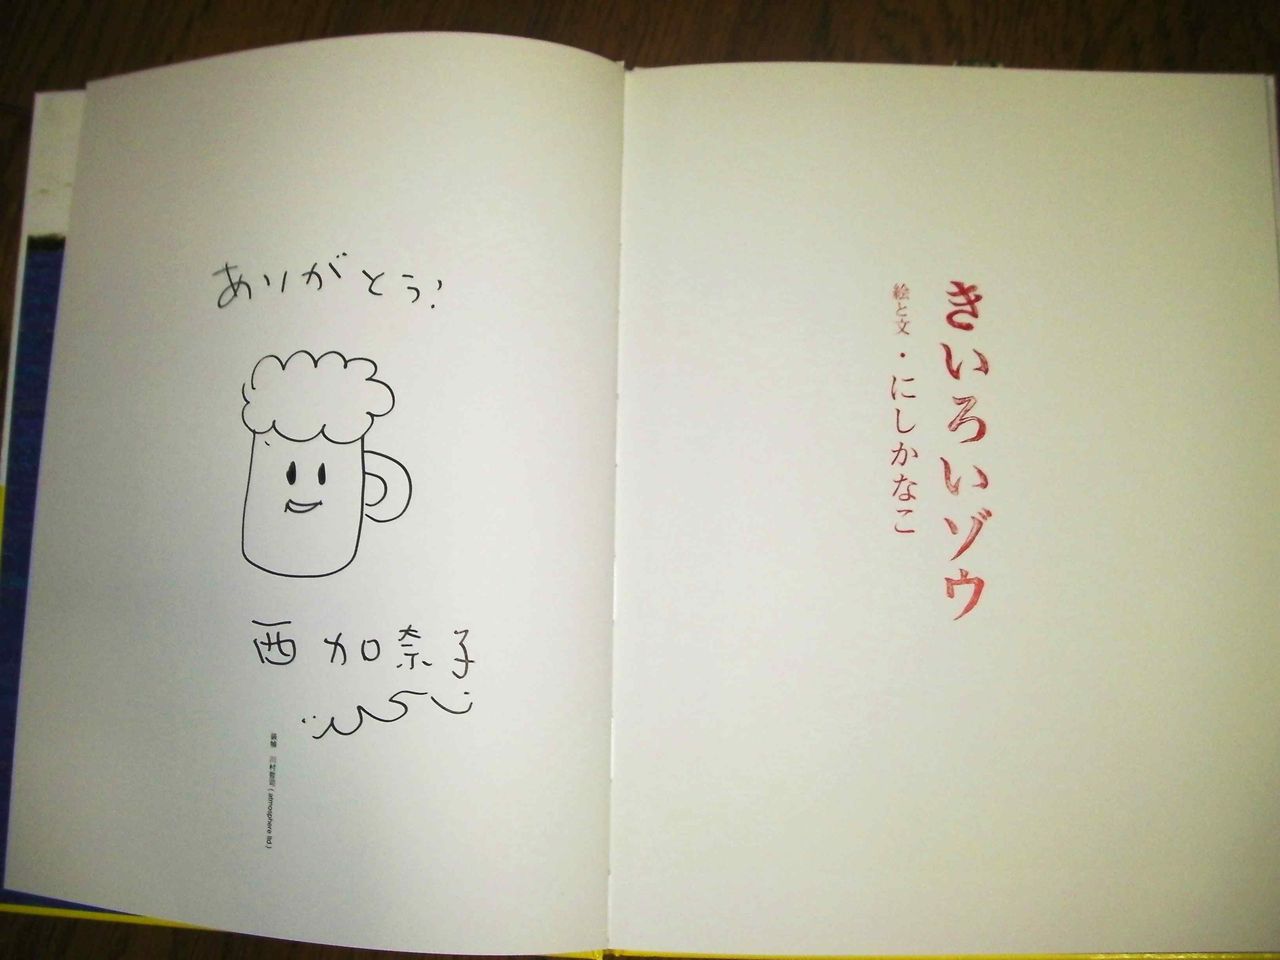 ありがとう!
西 加奈子
装幀 川村哲司(atmosphere ltd.)
きいろいゾウ
絵と文・にしかなこ